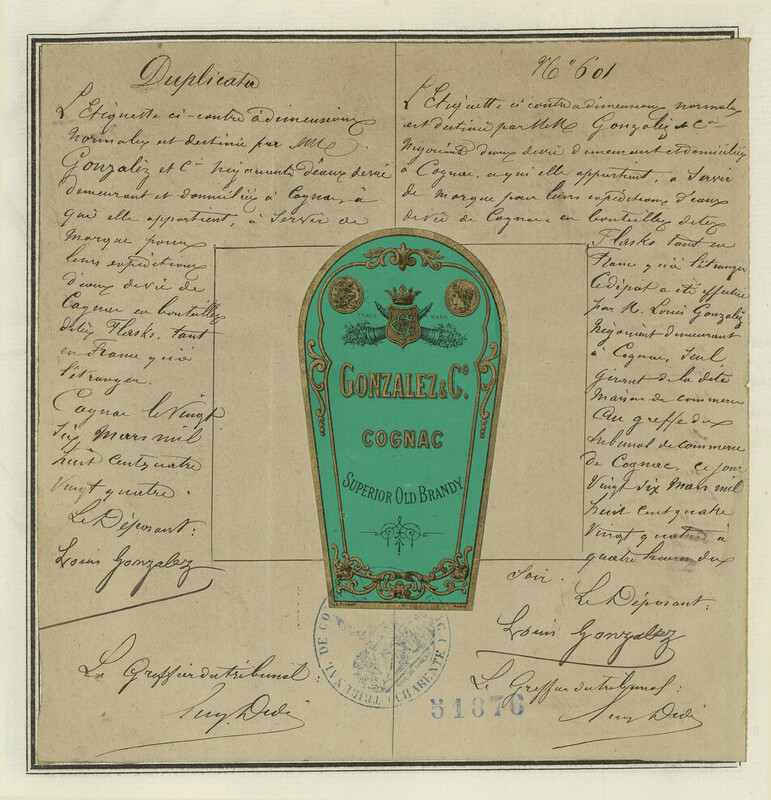 Duplicata
L'Etiquette ci-contre à dimensions
normales est destinée par MM
Gonzalèz et Cie négociants d'eaux de vie
demeurant et domiciliés à Cognac, à
qui elle appartient, à servir de
marque pour
leurs expéditions
d'eaux de vie de
Cognac en bouteilles
dites Flasks, tant
en France qu'à
l'étranger.
Cognac le vingt
six Mars mil
huit cent quatre
vingt quatre.
Le Déposant:
Louis Gonzalez
Le Greffier du tribunal:
No 601
L'Etiquette ci contre à dimensions normales
est destinée par MM Gonzalèz & Cie
Négociants d'eaux de vie demeurant et domiciliés
à Cognac, a qui elle appartient, a servir
de marque pour leurs expéditions d'eaux
de vie de Cognac en bouteilles dites
Flasks tant en
France qu'à l'étranger
Ce dépot a été effectué
par M. Louis Gonzalèz
Négociant demeurant
à Cognac, seul
gérant de la dite
maison de commerce
au greffe du
tribunal de commerce
de Cognac, ce jour
vingt six Mars mil
huit cent quatre
vingt quatre à
quatre heures du
soir.
Le Déposant:
Louis Gonzalez
Le Greffier du tribunal:
TRADE MARK
GONZALEZ & Co.
COGNAC
SUPERIOR OLD BRANDY
TRIBUNAL DE CO
CHARENTE
51876